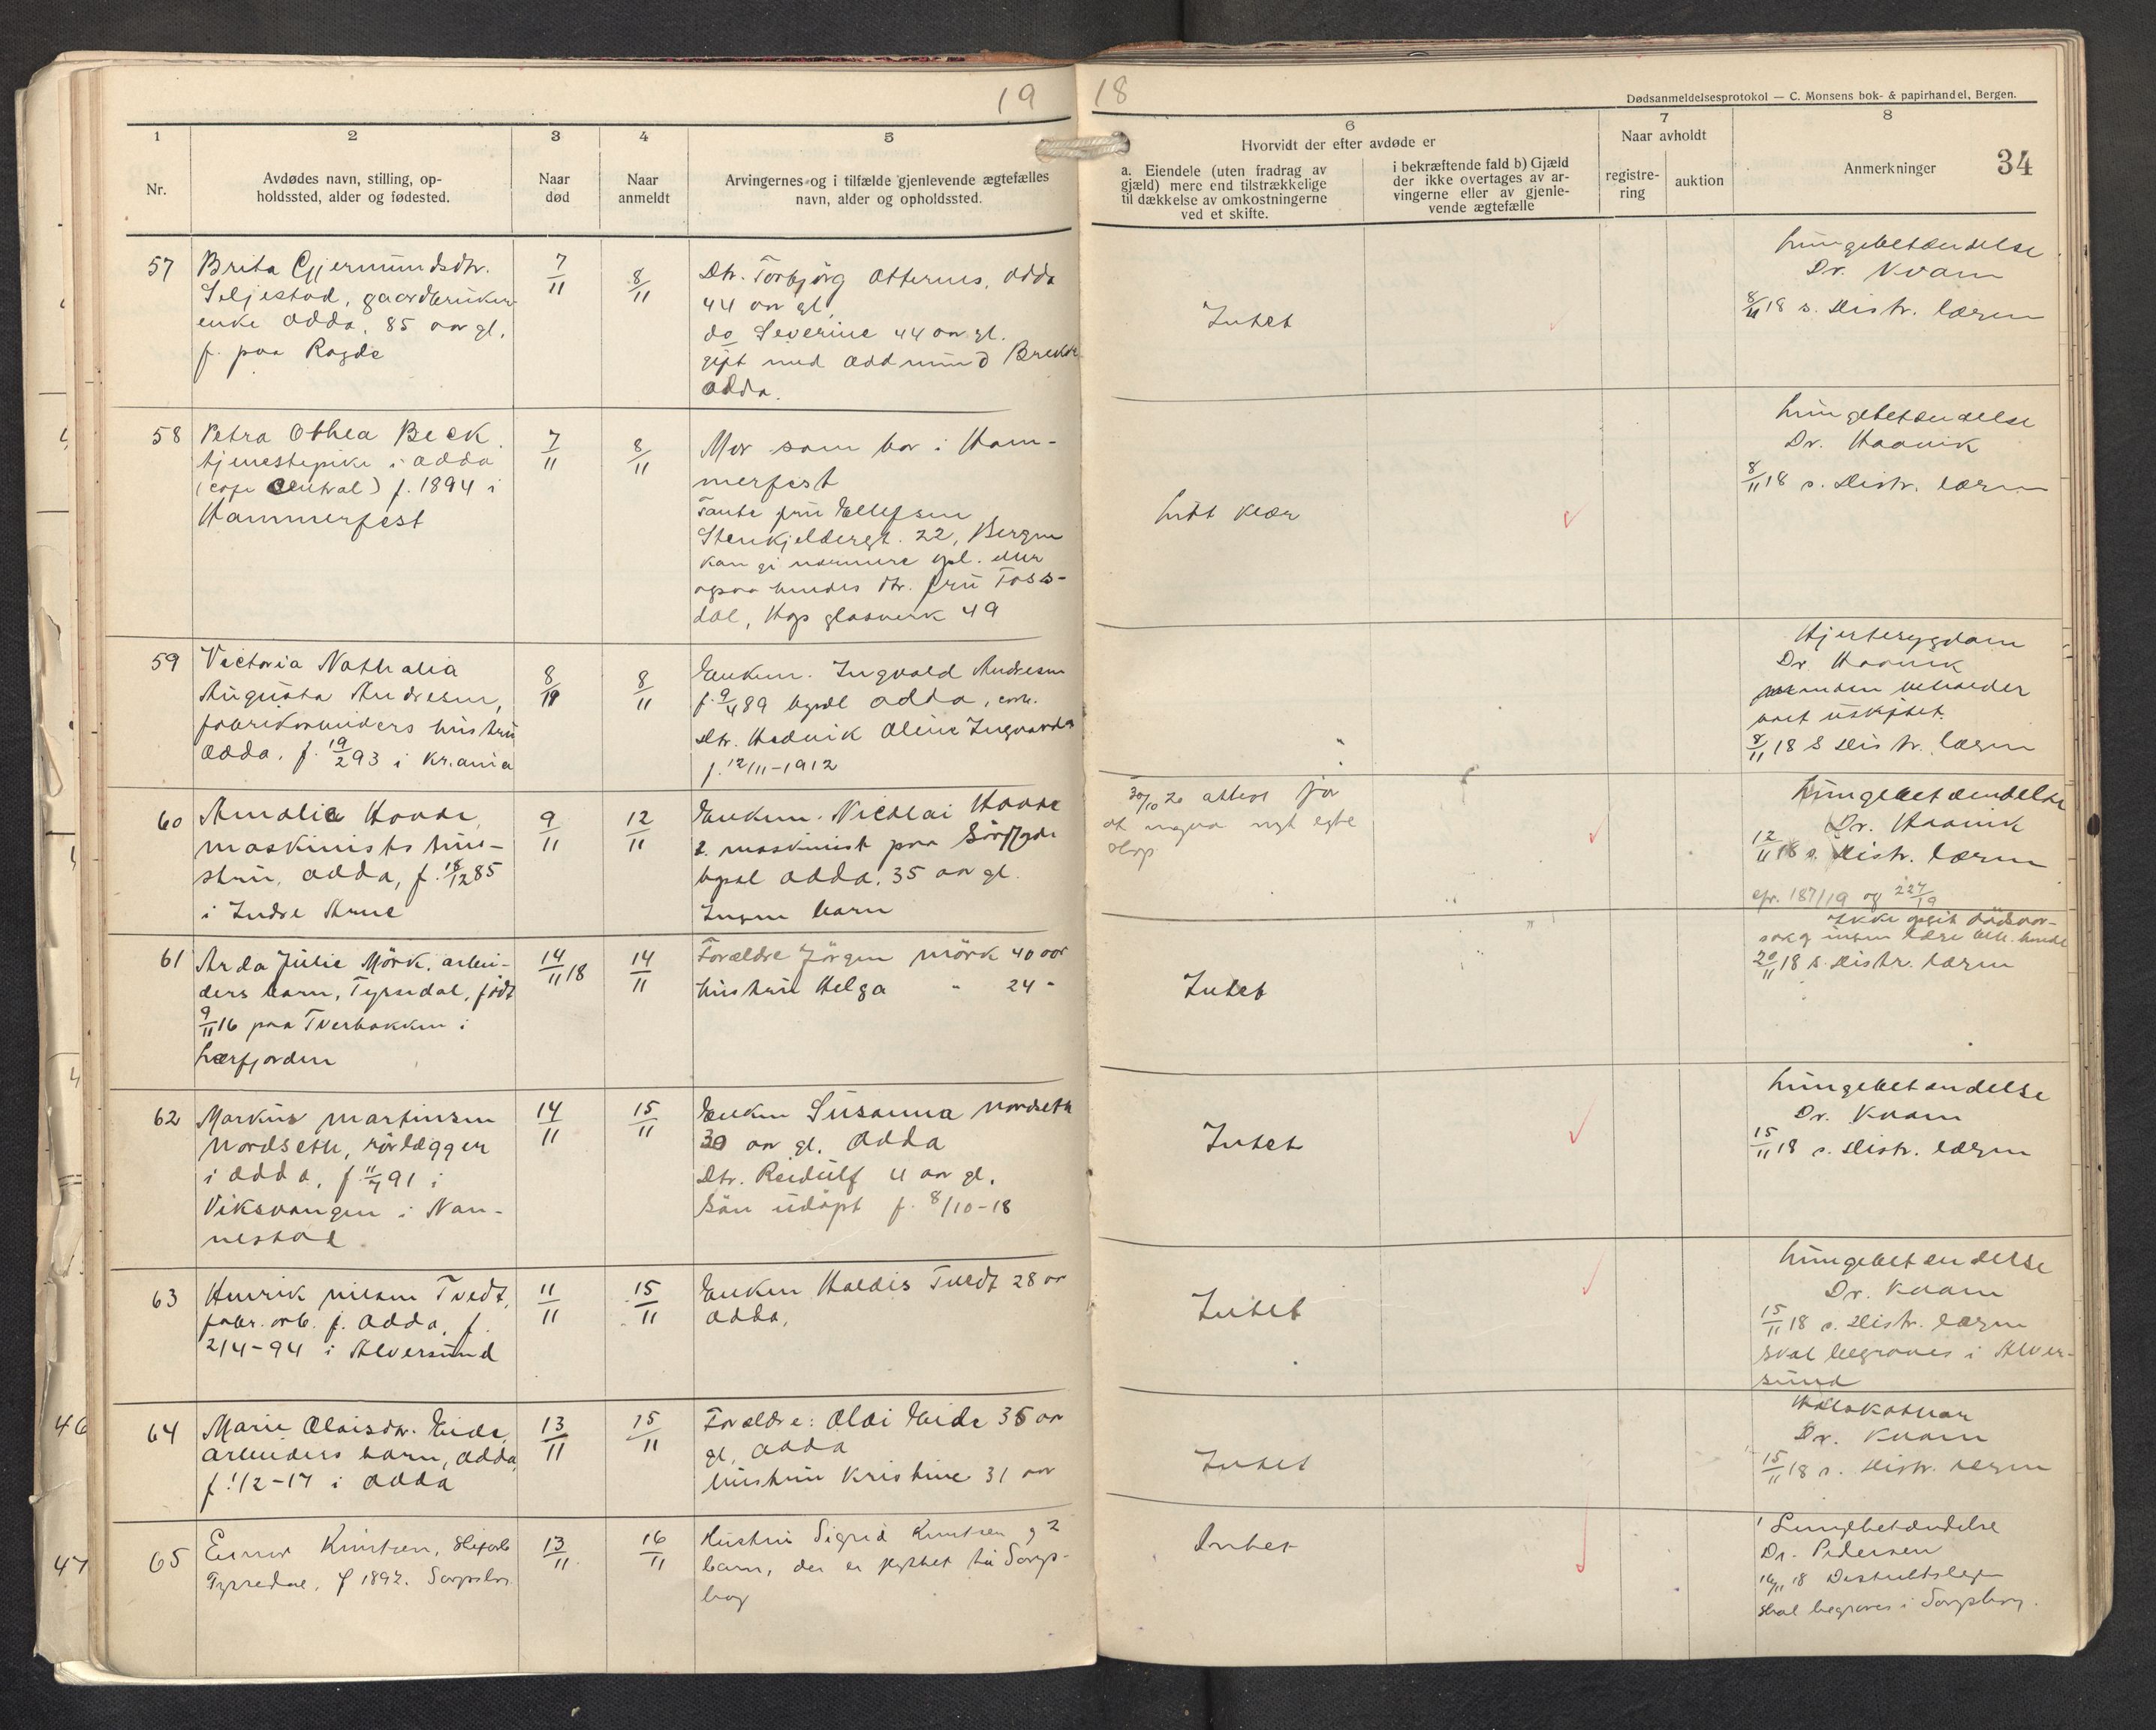 19
18
Dødsanmeldelsesprotokol — C. Monsens bok- & papirhandel, Bergen.
34
1
2
3
4
5
6
7
8
Nr.
Avdødes navn, stilling, op-
holdssted, alder og fødested.
Naar
død
Naar
anmeldt
Arvingernes og i tilfælde gjenlevende ægtefælles
navn, alder og opholdssted.
Hvorvidt der efter avdøde er
a. Eiendele (uten fradrag av
gjæld) mere end tilstrækkelige
til dækkelse av omkostningerne
ved et skifte.
i bekræftende fald b) Gjæld
der ikke overtages av ar-
vingerne eller av gjenle-
vende ægtefælle
Naar avholdt
registre-
ring
auktion
Anmerkninger
57
Brita Gjermundsdtr.
Seljestad, gaardbruker
enke Odda, 85 aar gl.
f. paa Ragde
7/11
8/11
Dtr. Torbjörg Otternes, Odda
44 aar gl.
do Severine 44 aar gl.
gift med Oddmund Brekke
Odda.
Intet
Lungebetændelse
Dr. Kvam
8/11 18 s. Distr. lægen
58
Petra Othea Beck
tjenestepike i Odda
(cafe Central) f. 1894 i
Hammerfest
7/11
8/11
Mor som bor i Ham-
merfest
Tante fru Ellefsen
Stenkjeldergt. 22, Bergen
kan gi nærmere opl. eller
ogsaa hendes dtr. fru Foss-
dal, Hops glasverk 49
Litt klær
Lungebetændelse
Dr. Haavik
8/11 18 s. Distr. lægen
59
Victoria Nathalia
Augusta Andresen,
fabrikarbeiders hustru
Odda. f. 19/2 93 i Kr.ania
8/11
8/11
Enkem. Ingvald Andresen
f. 9/4 89 bopæl Odda,
Dtr. Hedvik Oline Ingvarda
f. 12/11-1912
Hjertesygdom
Dr. Haavik
manden beholder
boet uskiftet.
8/11 18 s Distr. lægen
60
Amalie Haade
maskinists hus-
stru, Odda, f. 18/12 85
i Indre Arne
9/11
12/11
Enkem. Nicolai Haade
2. maskinist paa Sörfjord
bopæl Odda. 35 aar gl.
Ingen barn
30/10 20 attest for
at ingaa nyt egte
skap
Lungebetændelse
Dr. Haavik
12/11 18 s. Distr. lægen
cfr. 187/19 og 227/19
61
Arda Julie Mörk, arbei-
ders barn, Tyssedal, född
9/11 16 paa Tverbakken i
Lærfjorden
14/11 18
14/11
Forældre Jörgen Mörk 40 aar
hustru Helga " 24 "
Intet
Ikke opgit dödsaar-
sak og ingen læge beh. hende
20/11 18 s. Distr. lægen
62
Markus Martinsen
Nordseth, rörlægger
i Odda, f 11/7 91 i
Viksvangen i Nan-
nestad
14/11
15/11
Enken Susanna Nordseth
30 aar gl. Odda
Dtr. Reidulf 4 aar gl.
Sön udöpt f. 8/10-18
Intet
Lungebetændelse
Dr. Kvam
15/11 18 s. Distr. lægen
63
Henrik Nilsen Tvedt,
fabr. arb. f. Odda, f.
2/4-94 i Alversund
11/11
15/11
Enken Haldis Tvedt 28 aar
Odda,
Intet
Lungebetændelse
Dr. Kvam
15/11 18 s. Distr. lægen
skal begraves i Alver-
sund
64
Marie Olaisdtr. Eide,
arbeiders barn, Odda,
f. 1/2-17 i Odda
13/11
15/11
Forældre: Olai Eide 35 aar
gl. Odda
hustru Kristine 31 aar
Intet
Halskatharr
Dr. Kvam
15/11 18 s. Distr. lægen
65
Einar Knutsen,
Tyssedal, f 1892. Sarpsborg
13/11
16/11
Hustru Sigrid Knutsen og 2
barn, der er flyttet til Sarps-
borg
Intet
Lungebetændelse
Dr. Pedersen
16/11 18 Distriktslægen
skal begraves i Sarpsborg.
46
47